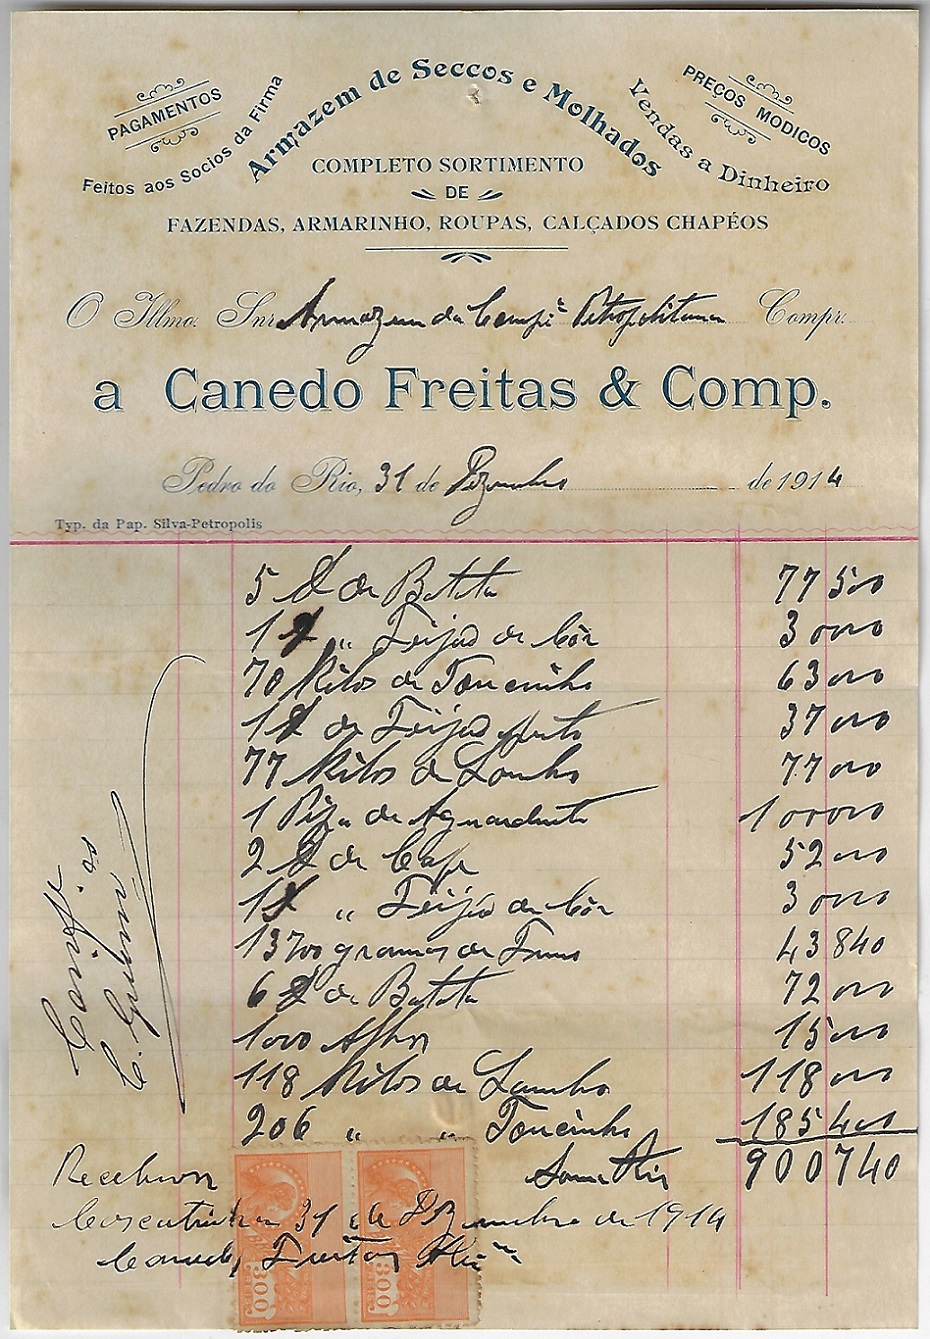 PAGAMENTOS
Feitos aos Socios da Firma
Armazem de Seccos e Molhados
PREÇOS MODICOS
Vendas a Dinheiro
COMPLETO SORTIMENTO
DE
FAZENDAS, ARMARINHO, ROUPAS, CALÇADOS CHAPÉOS
O Illmo. Snr. Armazem da Compª Petropolitana Compr.
a Canedo Freitas & Comp.
Pedro do Rio, 31 de Dezembro de 1914
Typ. da Pap. Silva-Petropolis
5 de Batata 77 500
1 " Feijão de Côr 3 0000
70 Kilos de Toucinho 63 000
1 de Feijão preto 37 000
77 Kilos de Lombo 77 000
1 Pipa de Aguardente 100000
2 de Cafe 52 000
1 " Feijão de Côr 3 0000
13700 gramas de Fumo 43 840
6 de Batata 72 000
1000 Alhos 15 000
118 Kilos de Lombo 118 000
206 " " Toucinho 185 400
Somma 900740
Recebemos
31 de Dezembro de 1914
Canedo Freitas
300
300
Confe